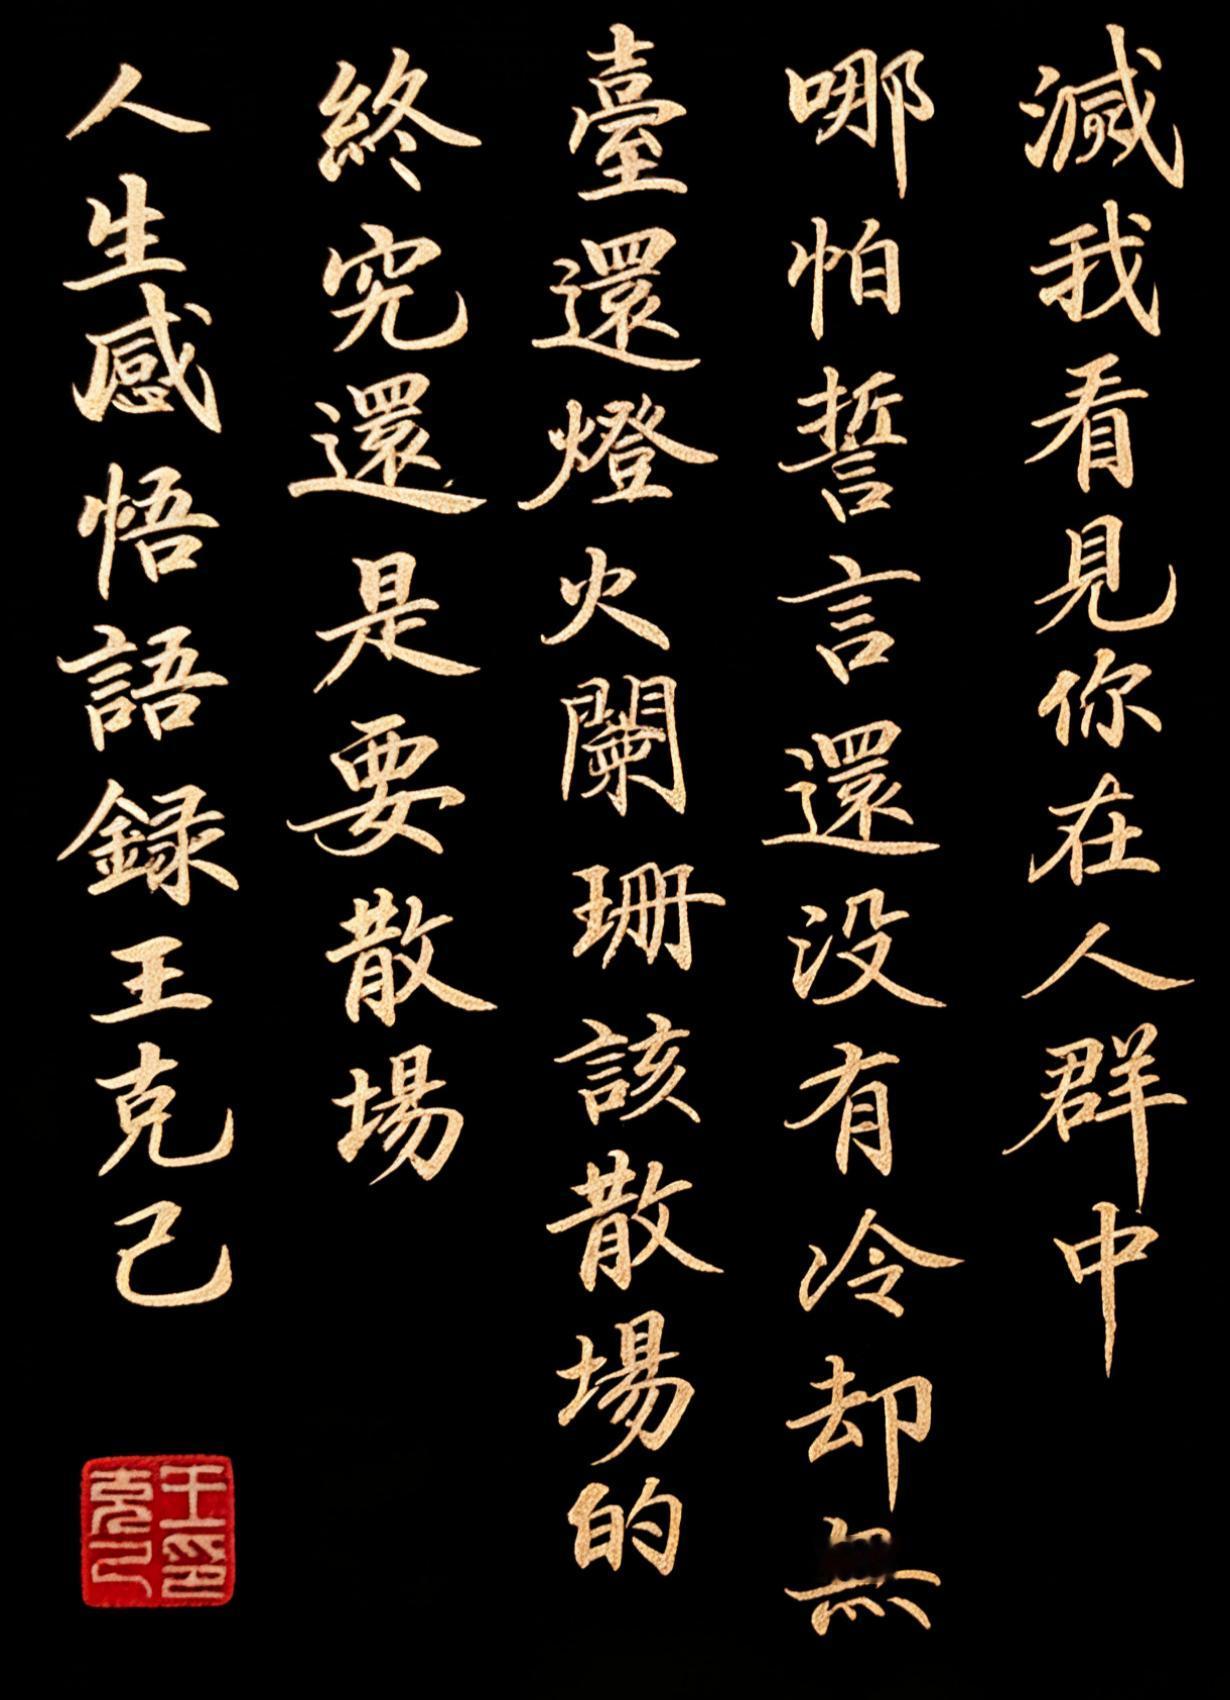 減我看見你在人群中
哪怕誓言還没有冷却
臺還燈火闌珊該散場的
終究還是要散場
人生感悟語録王克己
王印克己